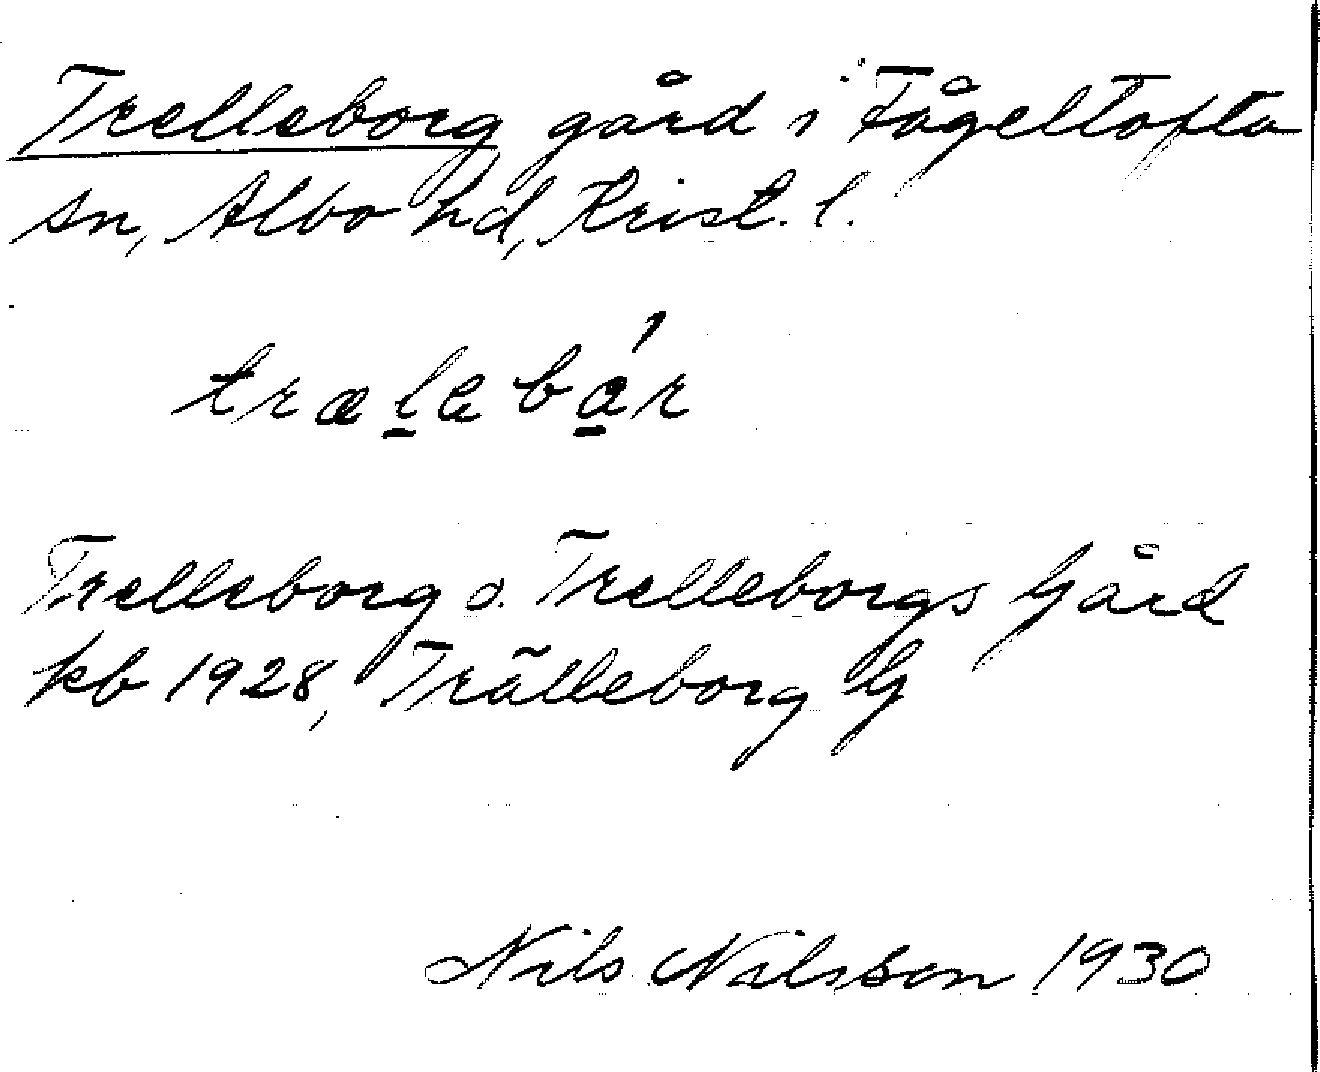 Trelleborg gård i Fågeltofta
sn, Albo hd, Krist. l.
træl̲ebá̲r
Trelleborg o. Trelleborgs Gård
kb 1928, Trälleborg G
Nils Nilsson 1930